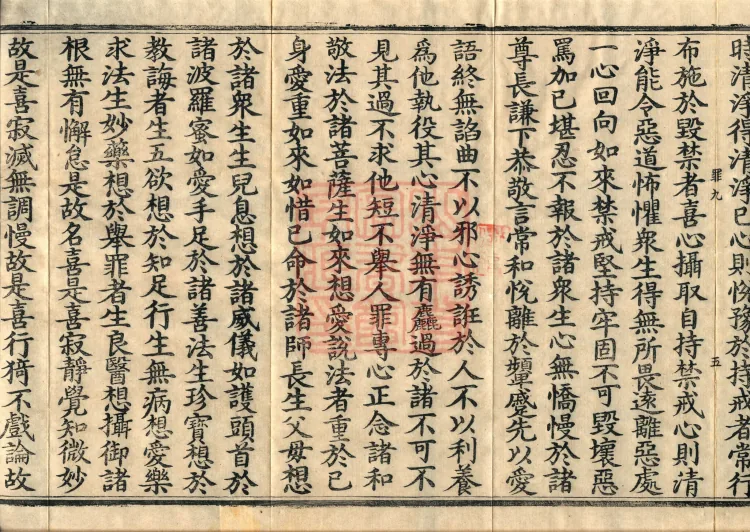 時清淨得清淨已心則悅豫於持戒者常行
罪九
五
布施於毀禁者喜心攝取自持禁戒心則清
淨能令惡道怖懼衆生得無所畏遠離惡處
一心回向如來禁戒堅持牢固不可毀壞惡
罵加已堪忍不報於諸衆生心無憍慢於諸
尊長謙下恭敬言常和悅離於顰蹙先以愛
語終無諂曲不以邪心誘誑於人不以利養
爲他執役其心清淨無有麤過於諸不可不
見其過不求他短不舉人罪專心正念諸和
敬法於諸菩薩生如來想愛說法者重於已
身愛重如來如惜已命於諸師長生父母想
於諸衆生生兒息想於諸威儀如護頭首於
諸波羅蜜如愛手足於諸善法生珍寶想於
教誨者生五欲想於知足行生無病想愛樂
求法生妙藥想於舉罪者生良醫想攝御諸
根無有懈怠是故名喜是喜寂靜覺知微妙
故是喜寂滅無調慢故是喜行猗不戲論故